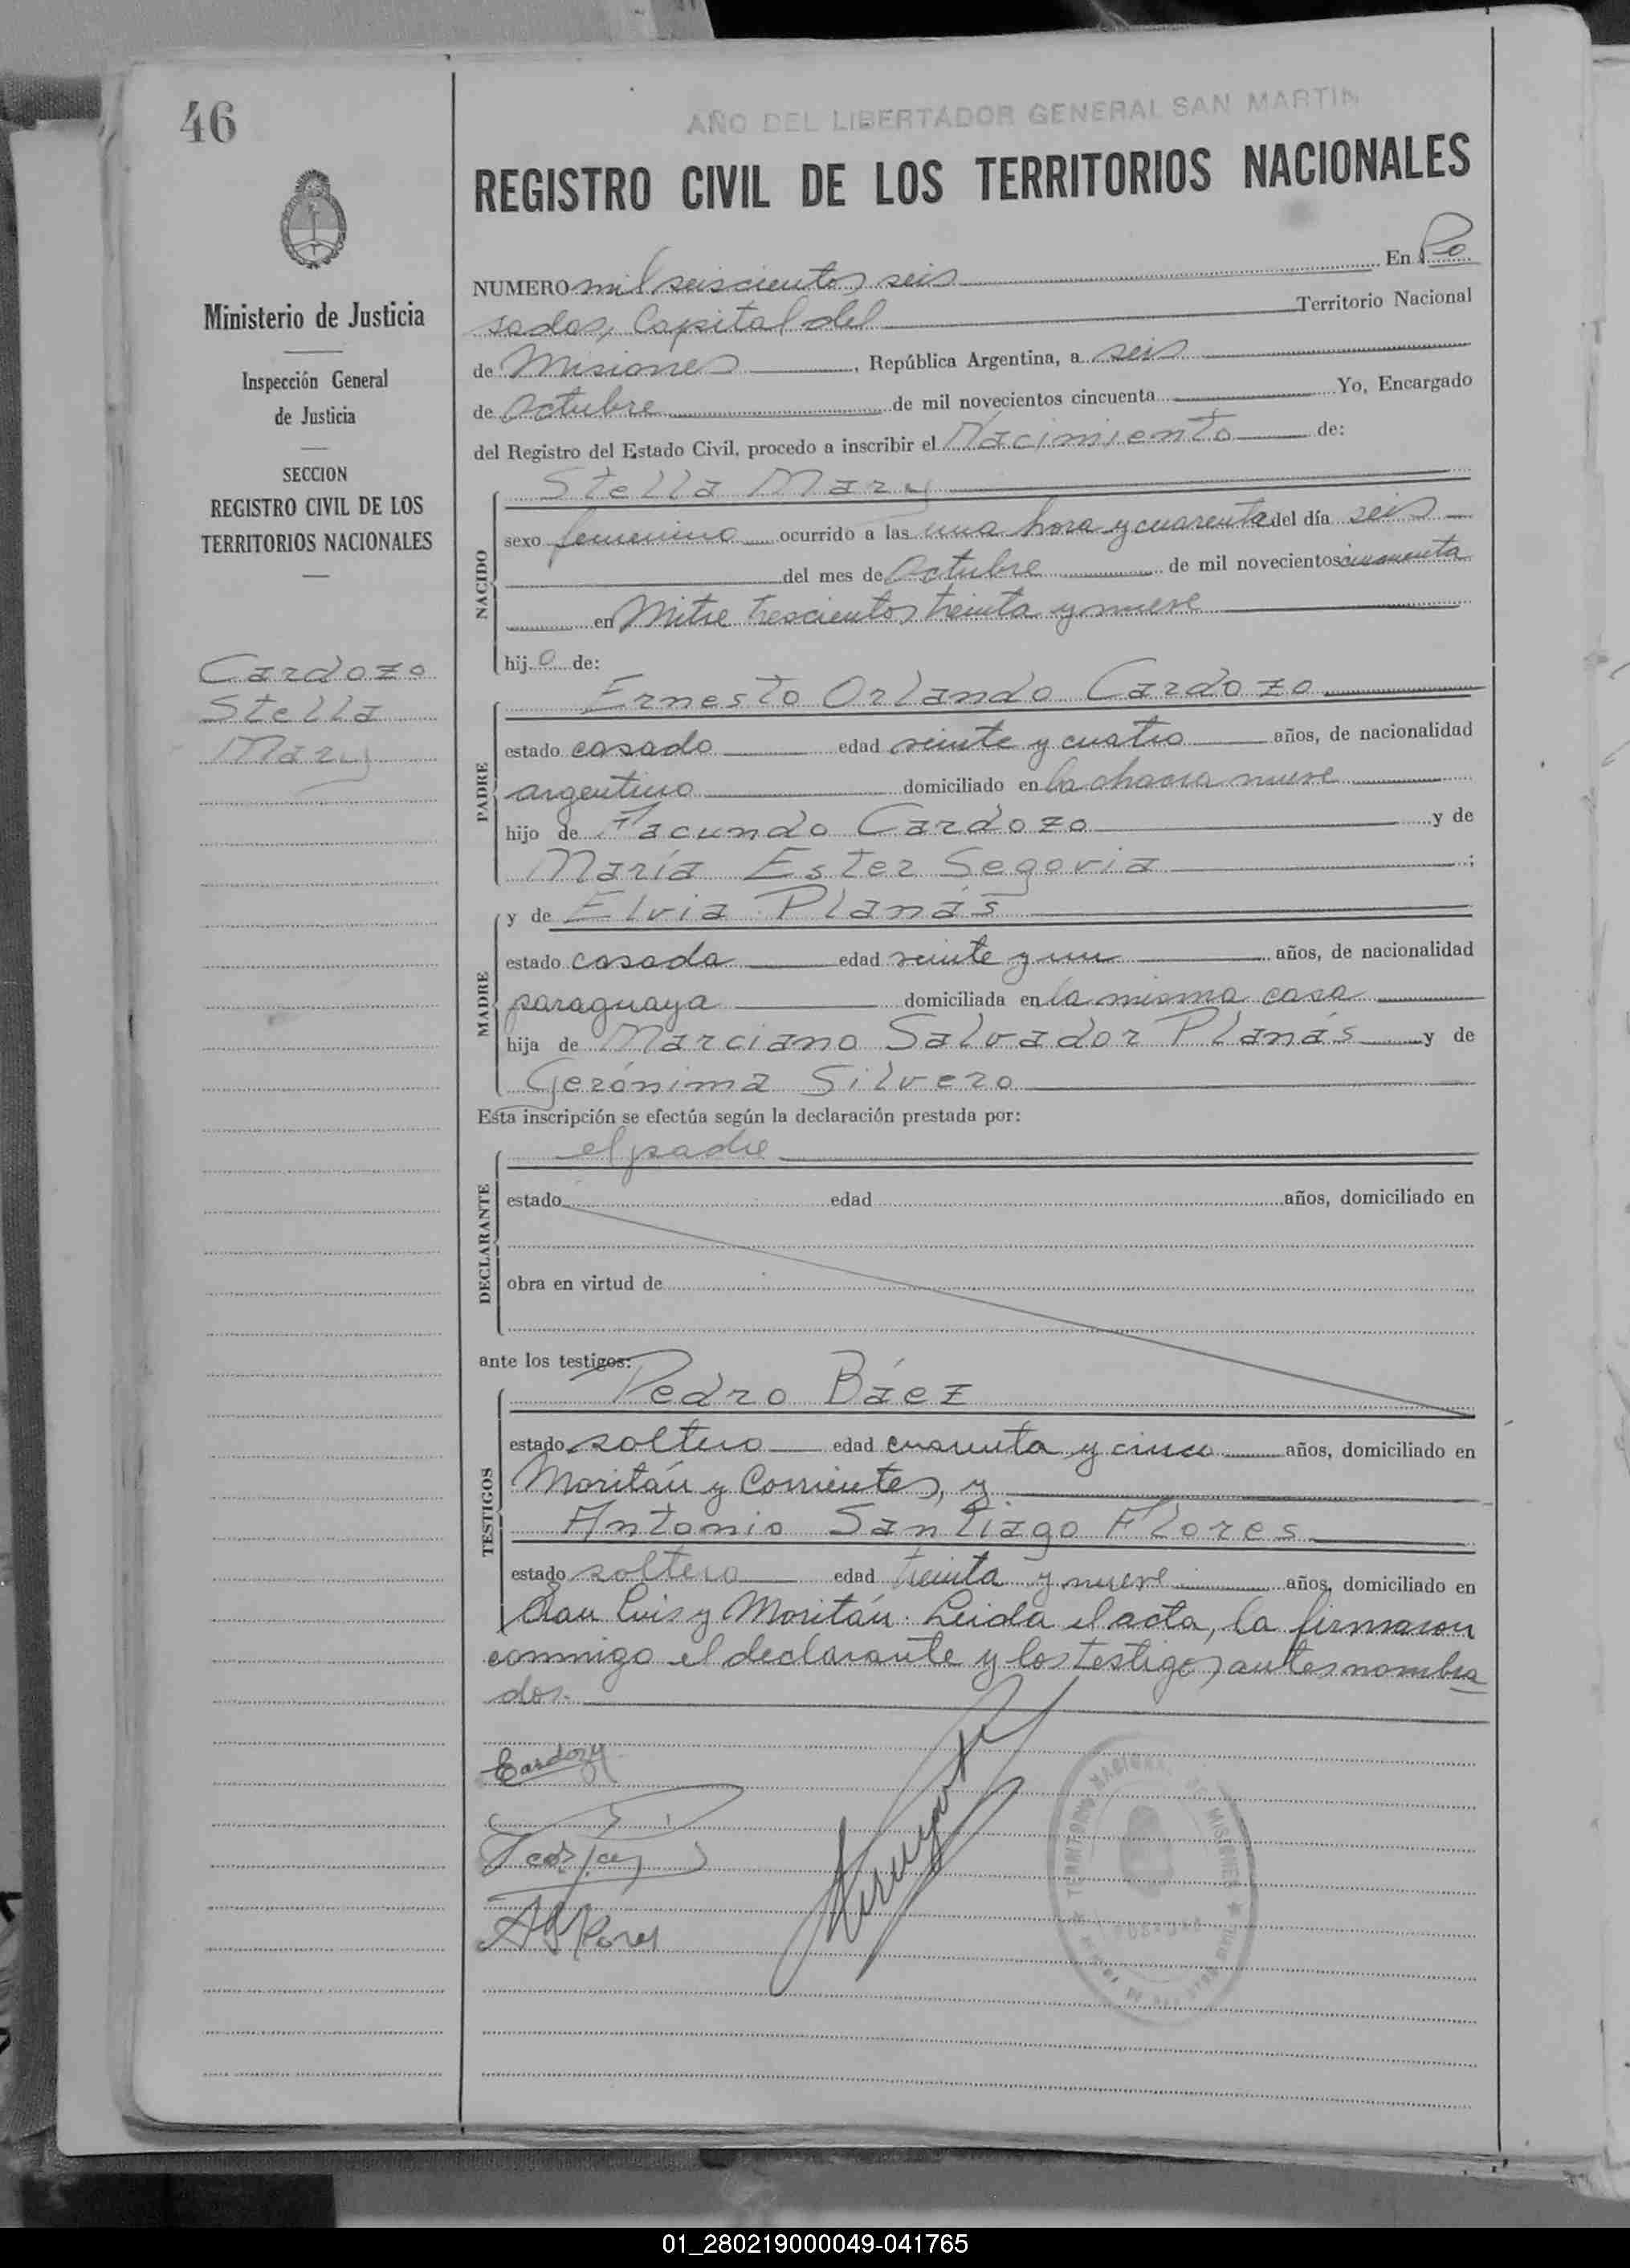 46
AÑO DEL LIBERTADOR GENERAL SAN MARTIN
REGISTRO CIVIL DE LOS TERRITORIOS NACIONALES
Ministerio de Justicia
Inspección General
de Justicia
SECCION
REGISTRO CIVIL DE LOS
TERRITORIOS NACIONALES
Cardozo
Stella
Mary
NUMERO mil seiscientos seis En Po
sadas, Capital del Territorio Nacional
de Misiones, República Argentina, a seis
de Octubre de mil novecientos cincuenta Yo, Encargado
del Registro del Estado Civil, procedo a inscribir el Nacimiento de:
NACIDO
Stella Mary
sexo femenino ocurrido a las una hora y cuarenta del día seis
del mes de Octubre de mil novecientos cincuenta
en Mitre trescientos treinta y nueve
hij o de:
PADRE
Ernesto Orlando Cardozo
estado casado edad veinte y cuatro años, de nacionalidad
argentino domiciliado en la chacra nueve
hijo de Facundo Cardozo y de
María Ester Segovia ;
MADRE
y de Elvia Planás
estado casada edad veinte y un años, de nacionalidad
paraguaya domiciliada en la misma casa
hija de Marciano Salvador Planás y de
Gerónima Silvero
Esta inscripción se efectúa según la declaración prestada por:
DECLARANTE
el padre
estado edad años, domiciliado en
obra en virtud de
ante los testigos:
TESTIGOS
Pedro Báez
estado soltero edad cuarenta y cinco años, domiciliado en
Moritán y Corrientes, y
Antonio Santiago Flores
estado soltero edad treinta y nueve años, domiciliado en
San Luis y Moritán. Leida el acta, la firmaron
conmigo el declarante y los testigos antes nombra
dos.-
Cardozo
TERRITORIO NACIONAL DE MISIONES
AS Flores
01_280219000049-041765